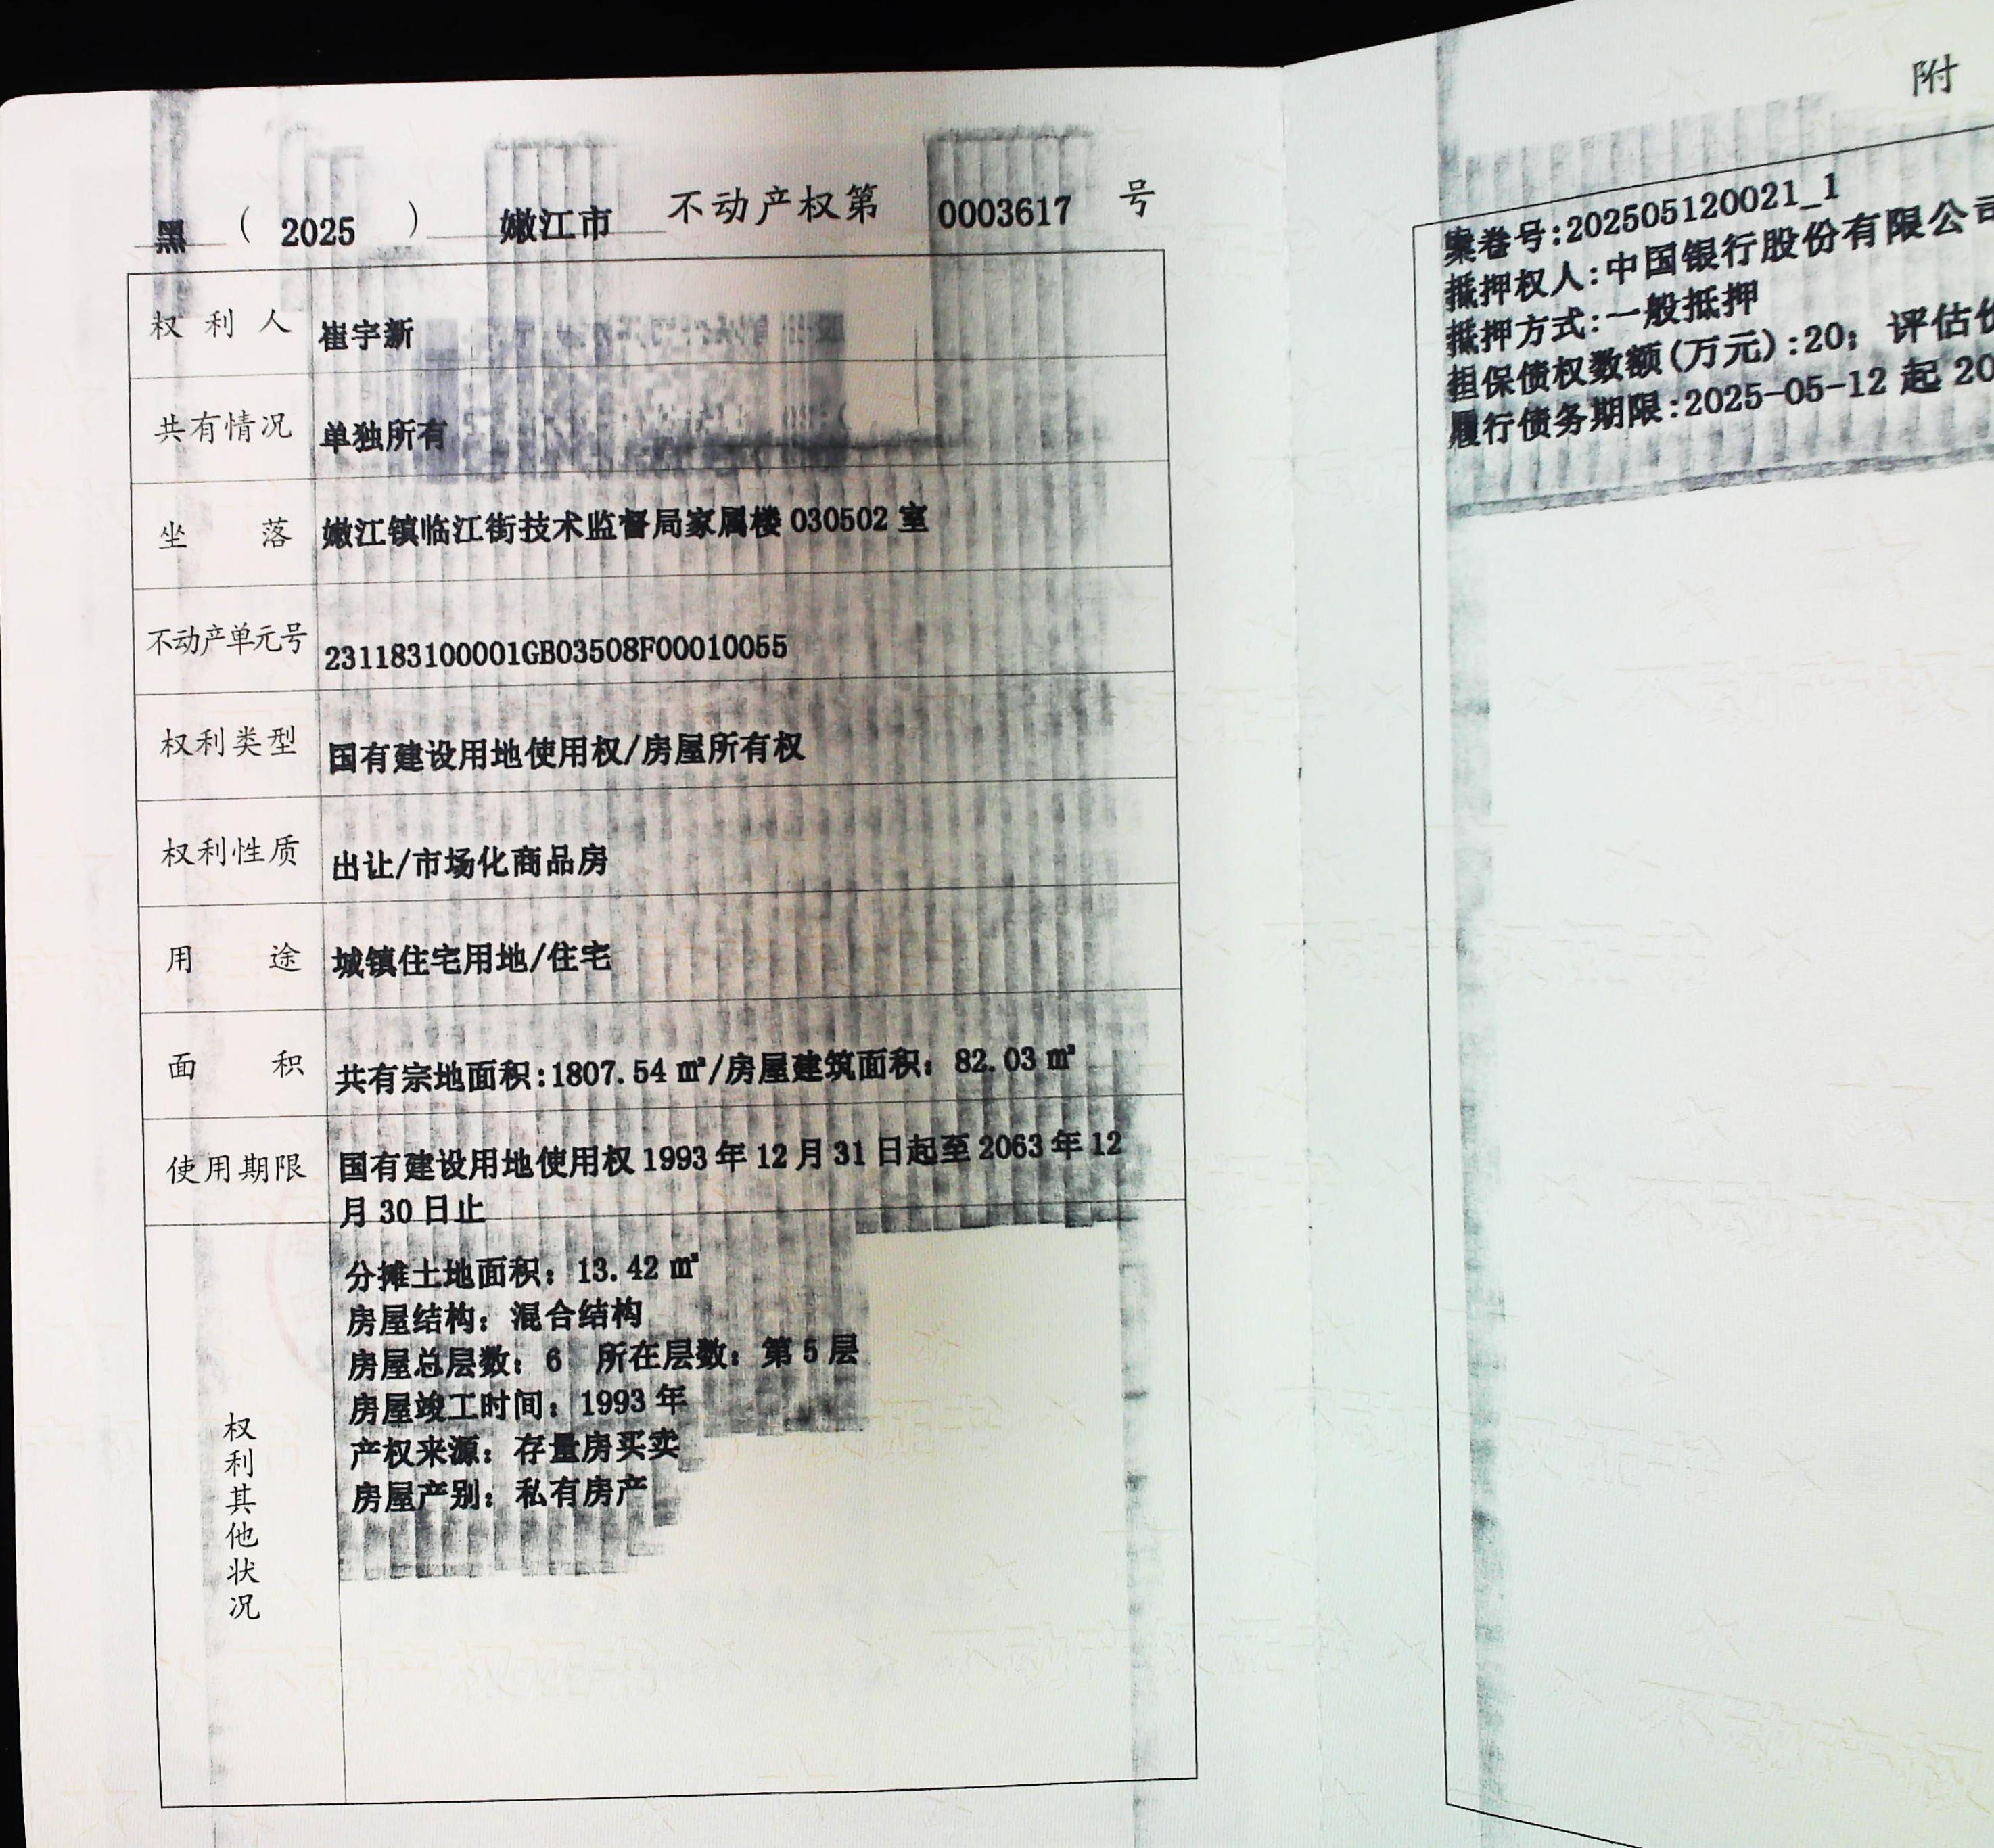 黑（2025）嫩江市 不动产权第 0003617 号
权利人 崔宇新
共有情况 单独所有
坐落 嫩江镇临江街技术监督局家属楼 030502 室
不动产单元号 231183100001GB03508F00010055
权利类型 国有建设用地使用权/房屋所有权
权利性质 出让/市场化商品房
用途 城镇住宅用地/住宅
面积 共有宗地面积:1807.54 ㎡/房屋建筑面积：82.03 ㎡
使用期限 国有建设用地使用权 1993 年 12 月 31 日起至 2063 年 12
月 30 日止
权利其他状况
分摊土地面积：13.42 ㎡
房屋结构：混合结构
房屋总层数：6 所在层数：第 5 层
房屋竣工时间：1993 年
产权来源：存量房买卖
房屋产别：私有房产
附
案卷号:202505120021_1
抵押权人:中国银行股份有限公司
抵押方式:一般抵押
担保债权数额(万元):20；评估价
履行债务期限:2025-05-12 起 20